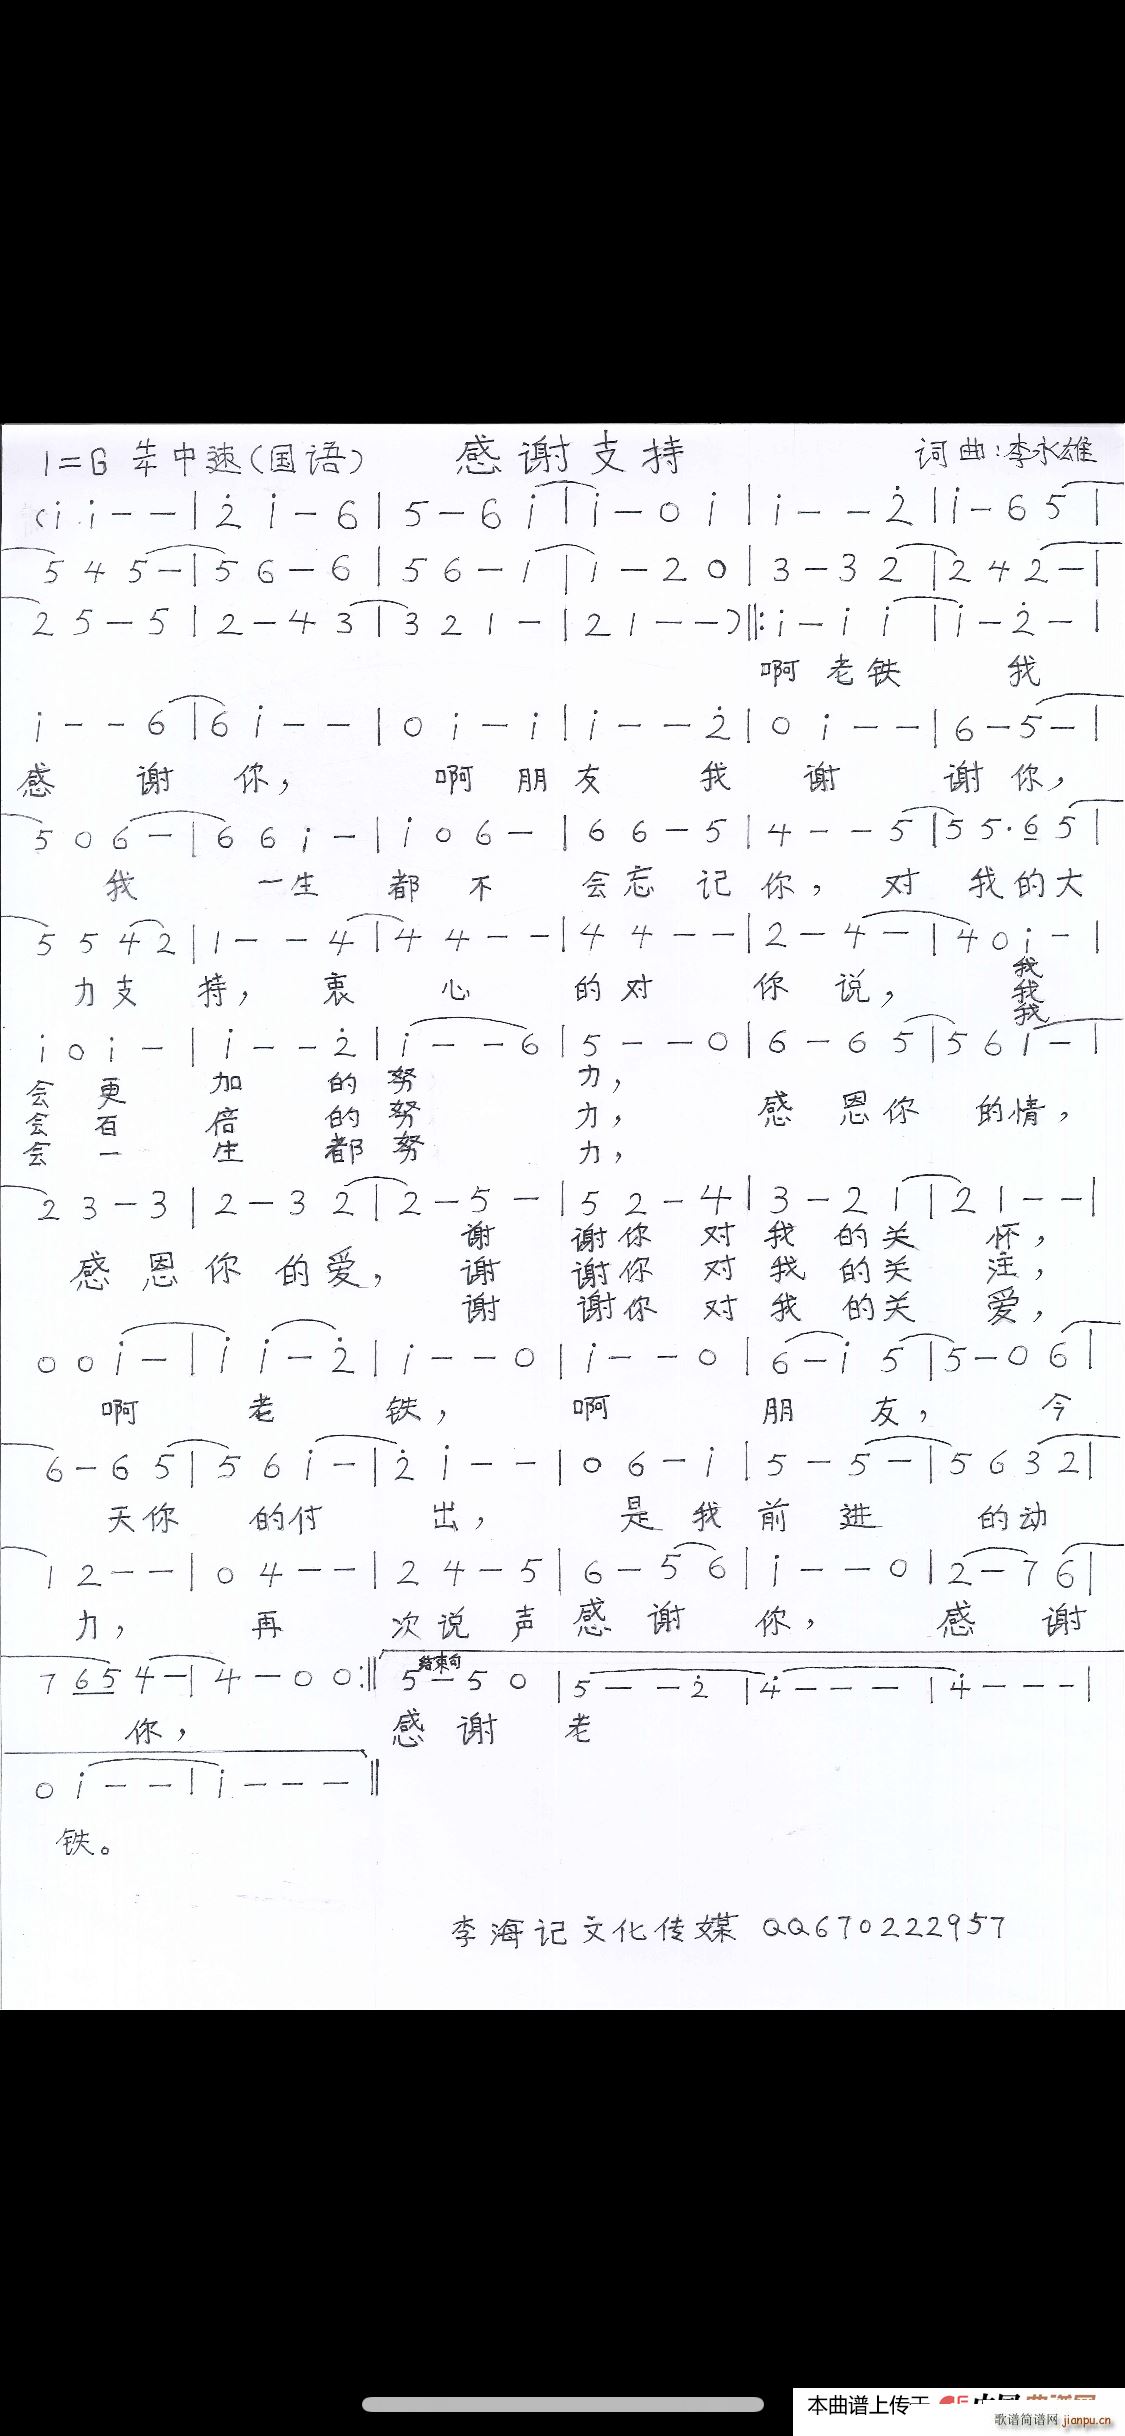 1=G 4/4 中速(国语) 感谢支持 词曲:李永雄
(i i - - | 2 i - 6 | 5 - 6 i | i - 0 i | i - - 2 | i - 6 5 |
5 4 5 - | 5 6 - 6 | 5 6 - 1 | 1 - 2 0 | 3 - 3 2 | 2 4 2 - |
2 5 - 5 | 2 - 4 3 | 3 2 1 - | 2 1 - - ) ‖: i - i i | i - 2 - |
啊 老 铁 我
i - - 6 | 6 i - - | 0 i - i | i - - 2 | 0 i - - | 6 - 5 - |
感 谢 你, 啊 朋 友 我 谢 谢 你,
5 0 6 - | 6 6 i - | i 0 6 - | 6 6 - 5 | 4 - - 5 | 5 5 · 6 5 |
我 一 生 都 不 会 忘 记 你, 对 我 的 大
5 5 4 2 | 1 - - 4 | 4 4 - - | 4 4 - - | 2 - 4 - | 4 0 i - |
力 支 持, 衷 心 的 对 你 说, 我
我
我
i 0 i - | i - - 2 | i - - 6 | 5 - - 0 | 6 - 6 5 | 5 6 1 - |
会 更 加 的 努 力,
会 百 倍 的 努 力, 感 恩 你 的 情,
会 一 生 都 努 力,
2 3 - 3 | 2 - 3 2 | 2 - 5 - | 5 2 - 4 | 3 - 2 1 | 2 1 - - |
谢 谢 你 对 我 的 关 怀,
感 恩 你 的 爱, 谢 谢 你 对 我 的 关 注,
谢 谢 你 对 我 的 关 爱,
0 0 i - | i i - 2 | i - - 0 | i - - 0 | 6 - i 5 | 5 - 0 6 |
啊 老 铁, 啊 朋 友, 今
6 - 6 5 | 5 6 i - | 2 i - - | 0 6 - i | 5 - 5 - | 5 6 3 2 |
天 你 的 付 出, 是 我 前 进 的 动
1 2 - - | 0 4 - - | 2 4 - 5 | 6 - 5 6 | i - - 0 | 2 - 7 6 |
力, 再 次 说 声 感 谢 你, 感 谢
结束句
7 6 5 4 - | 4 - 0 0 :‖ 5 - 5 0 | 5 - - 2 | 4 - - - | 4 - - - |
你, 感 谢 老
0 i - - | i - - - ‖
铁。
李海记文化传媒 QQ670222957
本曲谱上传于
歌谱简谱网 jianpu.cn